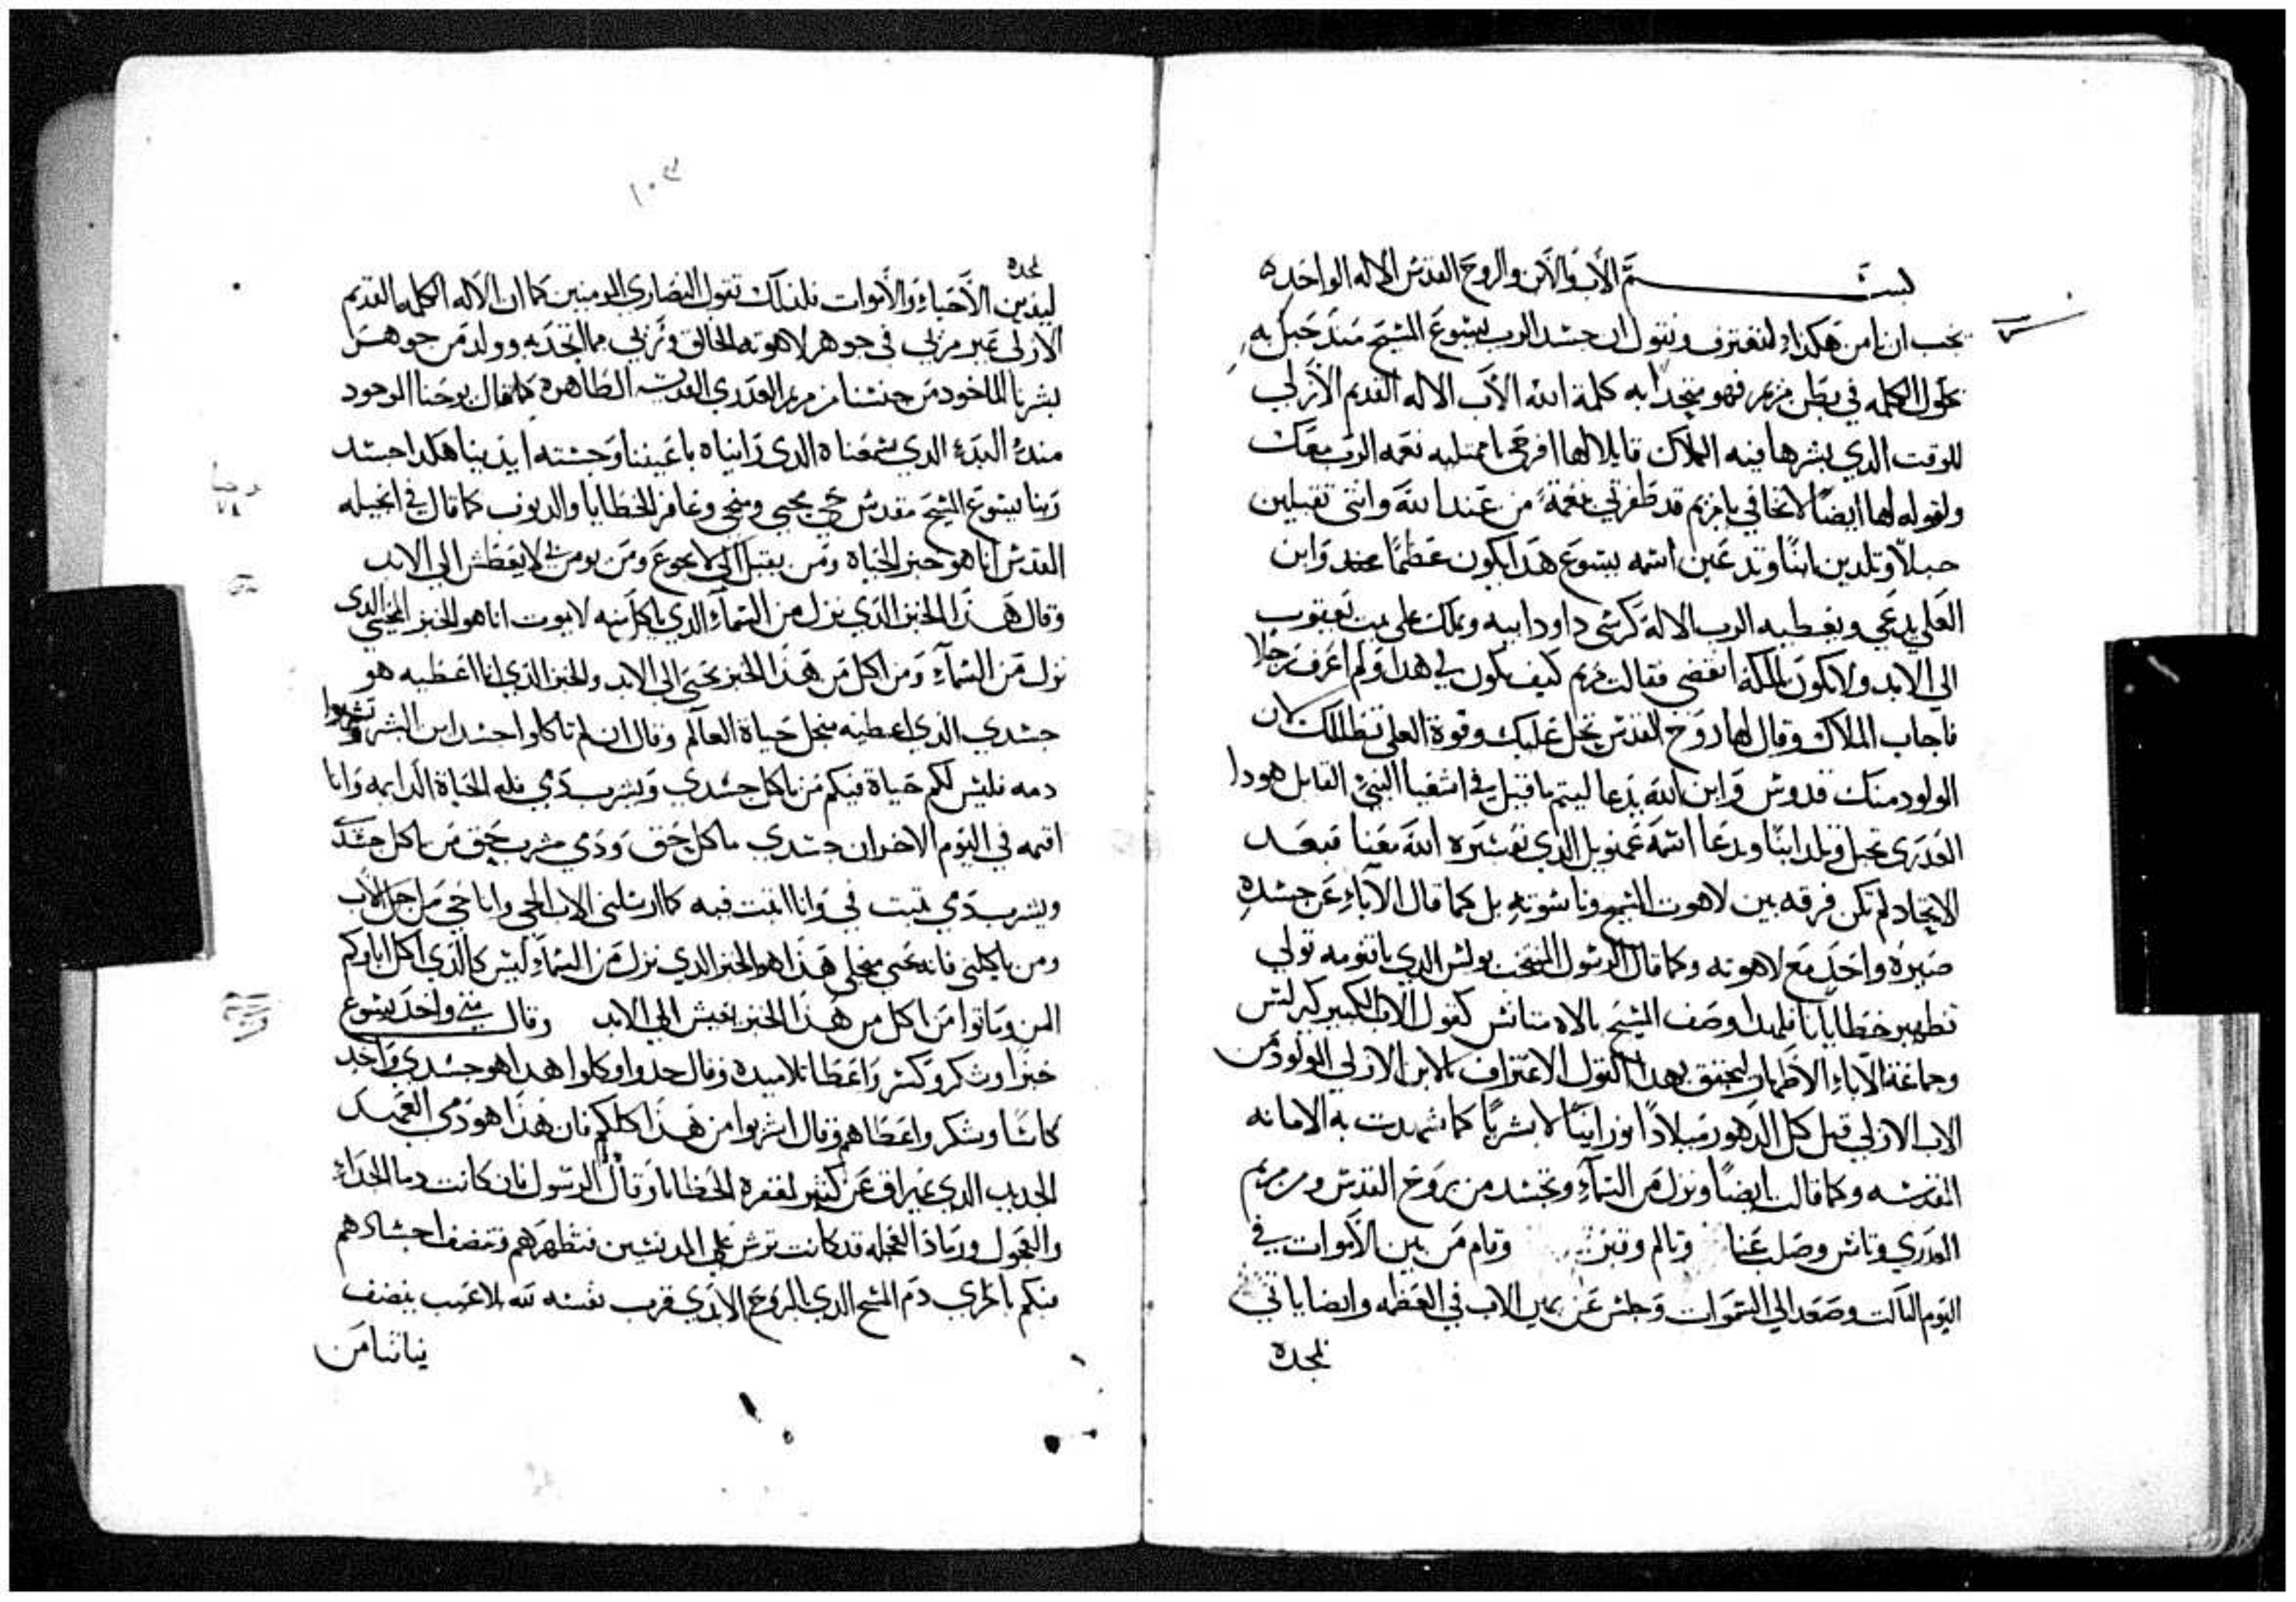 بســـــــم الآب والابن والروح القدس الاله الواحد
يجب ان نامن هكذا ولنعترف ونقول ان جسد الرب يسوع المسيح منذ حبل به
بحلول الكلمه في بطن مريم فهو متحدا به كلمة الله الآب الاله القديم الأزلي
للوقت الدي بشرها فيه الملاك قايلا لها افرحي يا ممتليه نعمه الرب معك
ولقوله لها ايضًا لا تخافي يا مريم قد ظفرتي بنعمةً من عند الله وانتي تقبلين
حبلاً وتلدين ابنًا وتدعين اسمه يسوع هدا يكون عظيمًا وابن
العلي يدعي ويعطيه الرب الاله كرسي داود ابيه ويملك على بيت يعقوب
الي الابد ولا يكون لملكه انقضى فقالت مريم كيف يكون لي هدا ولم اعرف رجلا
فاجاب الملاك وقال لها روح القدس تحل عليك وقوة العلي تظللك لان
الولود منك قدوس وابن الله يدعا ليتم ما قيل في اشعيا النبي القايل هودا
العدرى تحبل وتلد ابنًا ويدعا اسمه عمنويل الدي تفسيره الله معنا فبعد
الاتحاد لم تكن فرقه بين لاهوت المسيح وناسوته بل كما قال الآباء عن جسده
صيره واحد مع لاهوته وكما قال الرسول المنتخب بولس الدي باقنومه تولي
تطهير خطايانا فلهدا وصف المسيح بالاه متانس كقول الاب الكبير كيرلس
وجماعة الآباء الأطهار ليحقق بهدا القول الاعتراف بالابن الازلي المولود من
الاب الازلي قبل كل الدهور ميلادًا نورانيًا لا بشريًا كما شهدت به الامانه
المقدسه وكما قالت ايضًا ونزل من السمآء وتجسد من روح القدس ومن مريم
العدري وتانس وصلب عنا وتالم وقبر وقام من بين الأموات في
اليوم التالت وصعد الي السموات وجلس عن يمين الاب في العظمه وايضا ياتي
بمجده
بمجده
ليدين الأحياء والأموات فلذلك تقول النصاري المومنين كما ان الآله الكلمه القديم
الازلي غير مرئي في جوهر لاهوته الخالق وولد من جوهر
بشرنا الماخود من جنسنا من مريم العدري القديسه الطاهره كما قال يوحنا الموجود
منذ البدء الدي سمعناه الدي رايناه باعيننا وجسته ايدينا هكدا جسد
ربنا يسوع المسيح مقدس حي محيي ومنجي وغافر الخطايا والدنوب كما قال في انجيله
القدس انا هو خبز الحياه ومن يقبل الي لا يجوع ومن يومن بي لا يعطش الي الابد
وقال هذا الخبز الذي نزل من السمآء الدي ياكل منه لا يموت انا هو الخبز المحيي الدي
نزل من السمآء ومن اكل من هذا الخبز يحيى الى الابد والخبز الذي انا اعطيه هو
جسدي الذي اعطيه من اجل حياة العالم وقال ان لم تاكلوا جسد ابن البشر وتشربوا
دمه فليس لكم حياة فيكم من ياكل جسدي ويشرب دمي فله الحياة الدايمه وانا
اقيمه في اليوم الاخر ان جسدي ماكل حق ودمي مشرب حق من ياكل جسدي
ويشرب دمي يتبت في وانا اتبت فيه كما ارسلني الاب الحي وانا حي من اجل الاب
ومن ياكلني فانه يحيى من اجلي هذا هو الخبز الدي نزل من السماء ليس كالذي اكل اباوكم
المن وماتوا من اكل من هذا الخبز يعيش الي الابد وقال متى واخد يسوع
خبزا وشكر وكسر واعطا تلاميده وقال خدوا وكلوا هدا هو جسدي واخد
كاسًا وشكر واعطاهم وقال اشربوا من هذا كلكم فان هذا هو دمي العهد
الجديد الدي يهراق عن كثير لمغفرة الخطايا وقال الرسول فان كانت دما الجداء
والعجول ورماد العجله قد كانت ترش علي المدنسين فتطهرهم وتنضف اجسادهم
فبكم بالحري دم المسيح الدي بالروح الابدي قرب نفسه لله بلا عيب ينضف
نياتنا من